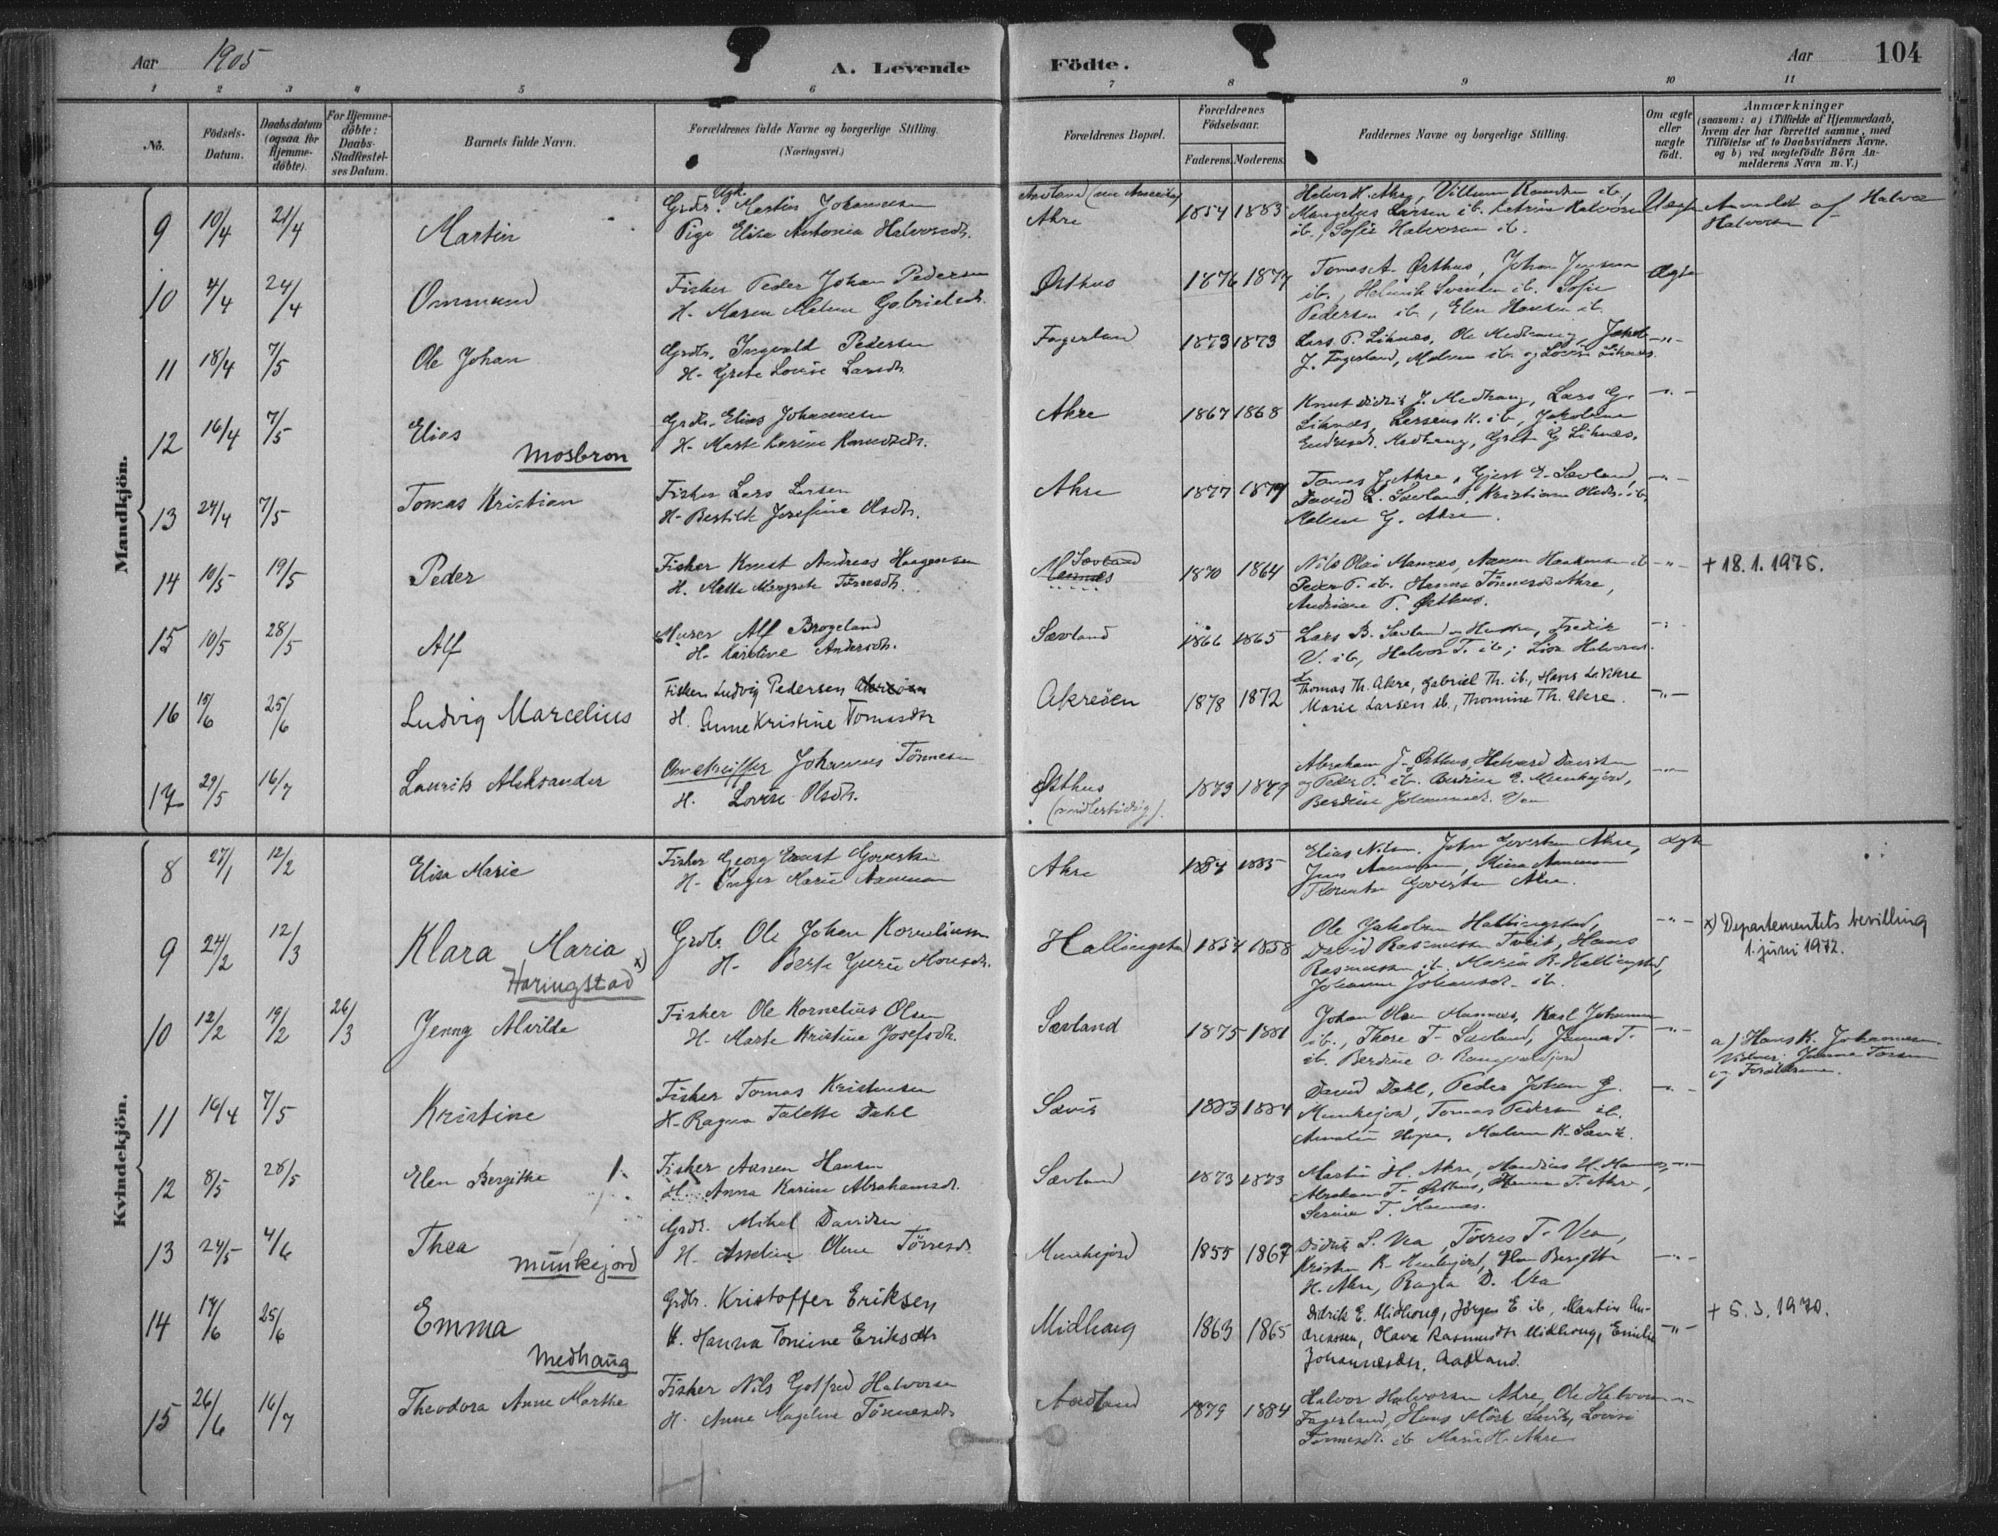 Aar 1905
A. Levende Födte.
Aar 104
1 2 3 4 5 6 7 8 9 10 11
No.
Födsels-
Datum.
Daabsdatum
(ogsaa for
Hjemme-
döbte).
For Hjemme-
döbte:
Daabs-
Stadfæstel-
ses Datum.
Barnets fulde Navn.
Forældrenes fulde Navne og borgerlige Stilling.
(Næringsvei.)
Forældrenes Bopæl.
Forældrenes
Födselsaar.
Faderens. Moderens.
Faddernes Navne og borgerlige Stilling.
Om ægte
eller
uægte
födt.
Anmærkninger
(saasom: a) i Tilfælde af Hjemmedaab,
hvem der har forrettet samme, med
Tilföielse af to Daabsvidners Navne,
og b) ved uægtefödte Börn An-
melderens Navn m. V.)
Mandkjön.
9 10/4 21/4 Martin
Ugk.
Grdr. Martin Johannesen
Pige Elisa Antonia Halvorsdtr.
Akre
1854 1883
ib., Sofie Halvorsen ib.
Anmeldt af Halvor
Halvorsen
10 4/4 24/4 Ommund
Fisker Peder Johan Pedersen
H. Maren Malene Gabrielsdtr.
Østhus
1876 1877
Tomas A. Østhus, Johan Jensen
ib., Helmik Svensen ib. Sofie
Pedersen ib., Elen Hansen ib.
Ægte
11 18/4 7/5 Ole Johan
Grdr. Ingvald Pedersen
H. Grete Lovise Larsdtr.
Fagerland
1873 1873
J. Fagerland, Malene ib. og Lovise Liknes.
-"-
12 16/4 7/5 Elias
Mosbron
Grdr. Elias Johannesen
H. Marte Karine Knudsdtr.
Akre
1867 1868
-"-
13 24/4 7/5 Tomas Kristian
Fisker Lars Larsen
H. Bertilde Josefine Olsdtr.
Akre
1877 1879
Tomas J. Akre, Gjert E. Sævland,
David L. Sævland, Kristiane Olsdtr. ib.
Malene G. Akre.
-"-
14 10/5 19/5 Peder
Fisker Knut Andreas Haagensen
H. Mette Margrete Tönnesdtr.
Sævland
Mannes
1870 1864
Peder P. ib. Hanna Tönnesdtr Akre,
Andriane P. Østhus.
-"-
+ 18.1.1975.
15 10/5 28/5 Alf
Murer Alf Brogeland
H. Karoline Andersdtr.
Sævland
1866 1865
Lars B. Sævland og Hustru, Fredrik
V. ib., Halvor T. ib.; Lisa Halvorsd.
-"-
16 15/6 25/6 Ludvig Marcelius
Fisker Ludvig Pedersen
H. Anne Kristine Tomasdtr
Akreöen
1878 1872
Thomas Th. Akre, Gabriel Th. ib., Hans L. Akre
Marie Larsen ib., Thomine Th. Akre.
-"-
17 29/5 16/7 Laurits Aleksander
Johannes Tönnesen
H. Lovise Olsdtr.
Østhus
(midlertidig).
1873 1879
Abraham J. Østhus, Halvard Davidsen
og Peder P. ib. Berdine E. Munkejord,
Berdine Johannesd. Vea
-"-
Kvindekjön.
8 27/1 12/2 Elisa Marie
Fisker Georg Ernst Govertsen
H. Inger Marie Aanensen
Akre
1884 1885
Elias Nilsen, John Govertsen Akre,
Govertsen Akre.
ægte
9 24/2 12/3 Klara Maria
x)
Haringstad
Grdr. Ole Johan Kornelius
H. Berte Guru Monsdtr.
Hallingstad
1854 1858
Ole Jakobsen Hallingstad,
David Rasmussen Tveit, Hans
Rasmussen ib. Maria R. Hallingstad,
Johanne Johansdtr. ib.
-"-
x) Departementets bevilling
1. juni 1972.
10 12/2 19/2 26/3 Jenny Alvilde
Fisker Ole Kornelius Olsen
H. Marte Kristine Josefsdtr.
Sævland
1875 1881
Johan Olsen Mannes, Karl Johannesen
ib., Thore T. Sævland, Jenine T.
ib. Berdine O.
-"-
a) Hans K. Johannesen.
Vidner:
og Forældrene.
11 16/4 7/5 Kristine
Fisker Tomas Kristensen
H. Ragna Talette Dahl
Sævik
1883 1884
David Dahl, Peder Johan G.
Munkejord, Tomas Pedersen ib.
Amalie Hope, Malene K. Sævik.
-"-
12 8/5 28/5 Elen Bergithe 1.
Fisker Aanen Hansen
H. Anna Karine Abrahamsdtr.
Sævland
1873 1873
Abraham T. Østhus, Hanna T. Akre,
-"-
13 24/5 4/6 Thea
Munkejord
Grdr. Mikal Davidsen
H. Asseline Oline Törresdtr.
Munkejord
1855 1867
Didrik S. Vea, Törres T. Vea,
Kristen R. Munkejord, Elen Bergitte
H. Akre, Ragla D. Vea
-"-
14 14/6 25/6 Emma
Medhaug
Grdbr. Kristoffer Eriksen
H. Hanna Tomine Eriksdtr
Midhaug
1863 1865
Didrik E. Midhoug, Jørgen E. ib., Martin An-
dreassen, Olava Rasmusdtr Midhoug, Emilie
Johannesdtr. Aadland.
-"-
+ 5.3.1970.
15 26/6 16/7 Theodora Anne Marthe
Fisker Nils Gotfred Halvorsen
H. Anne Mageline Tönnesdtr
Aadland
1879 1884
Halvor Halvorsen Akre, Ole Halvorsen
Fagerland, Hans Sævik, Lovise
Tönnesdtr. ib. Marie H. Akre
-"-